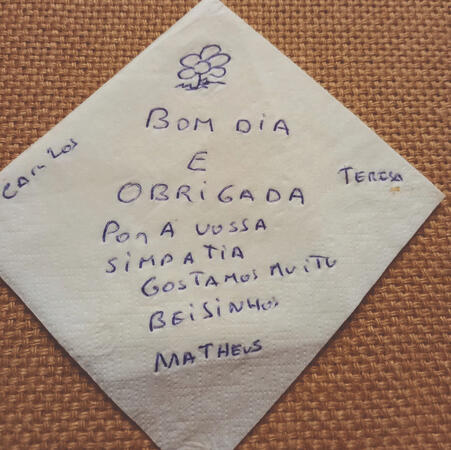 BOM DIA
E
OBRIGADA
CARLOS
TERESA
POR A VOSSA
SIMPATIA
GOSTAMOS MUITO
BEISINHOS
MATHEUS